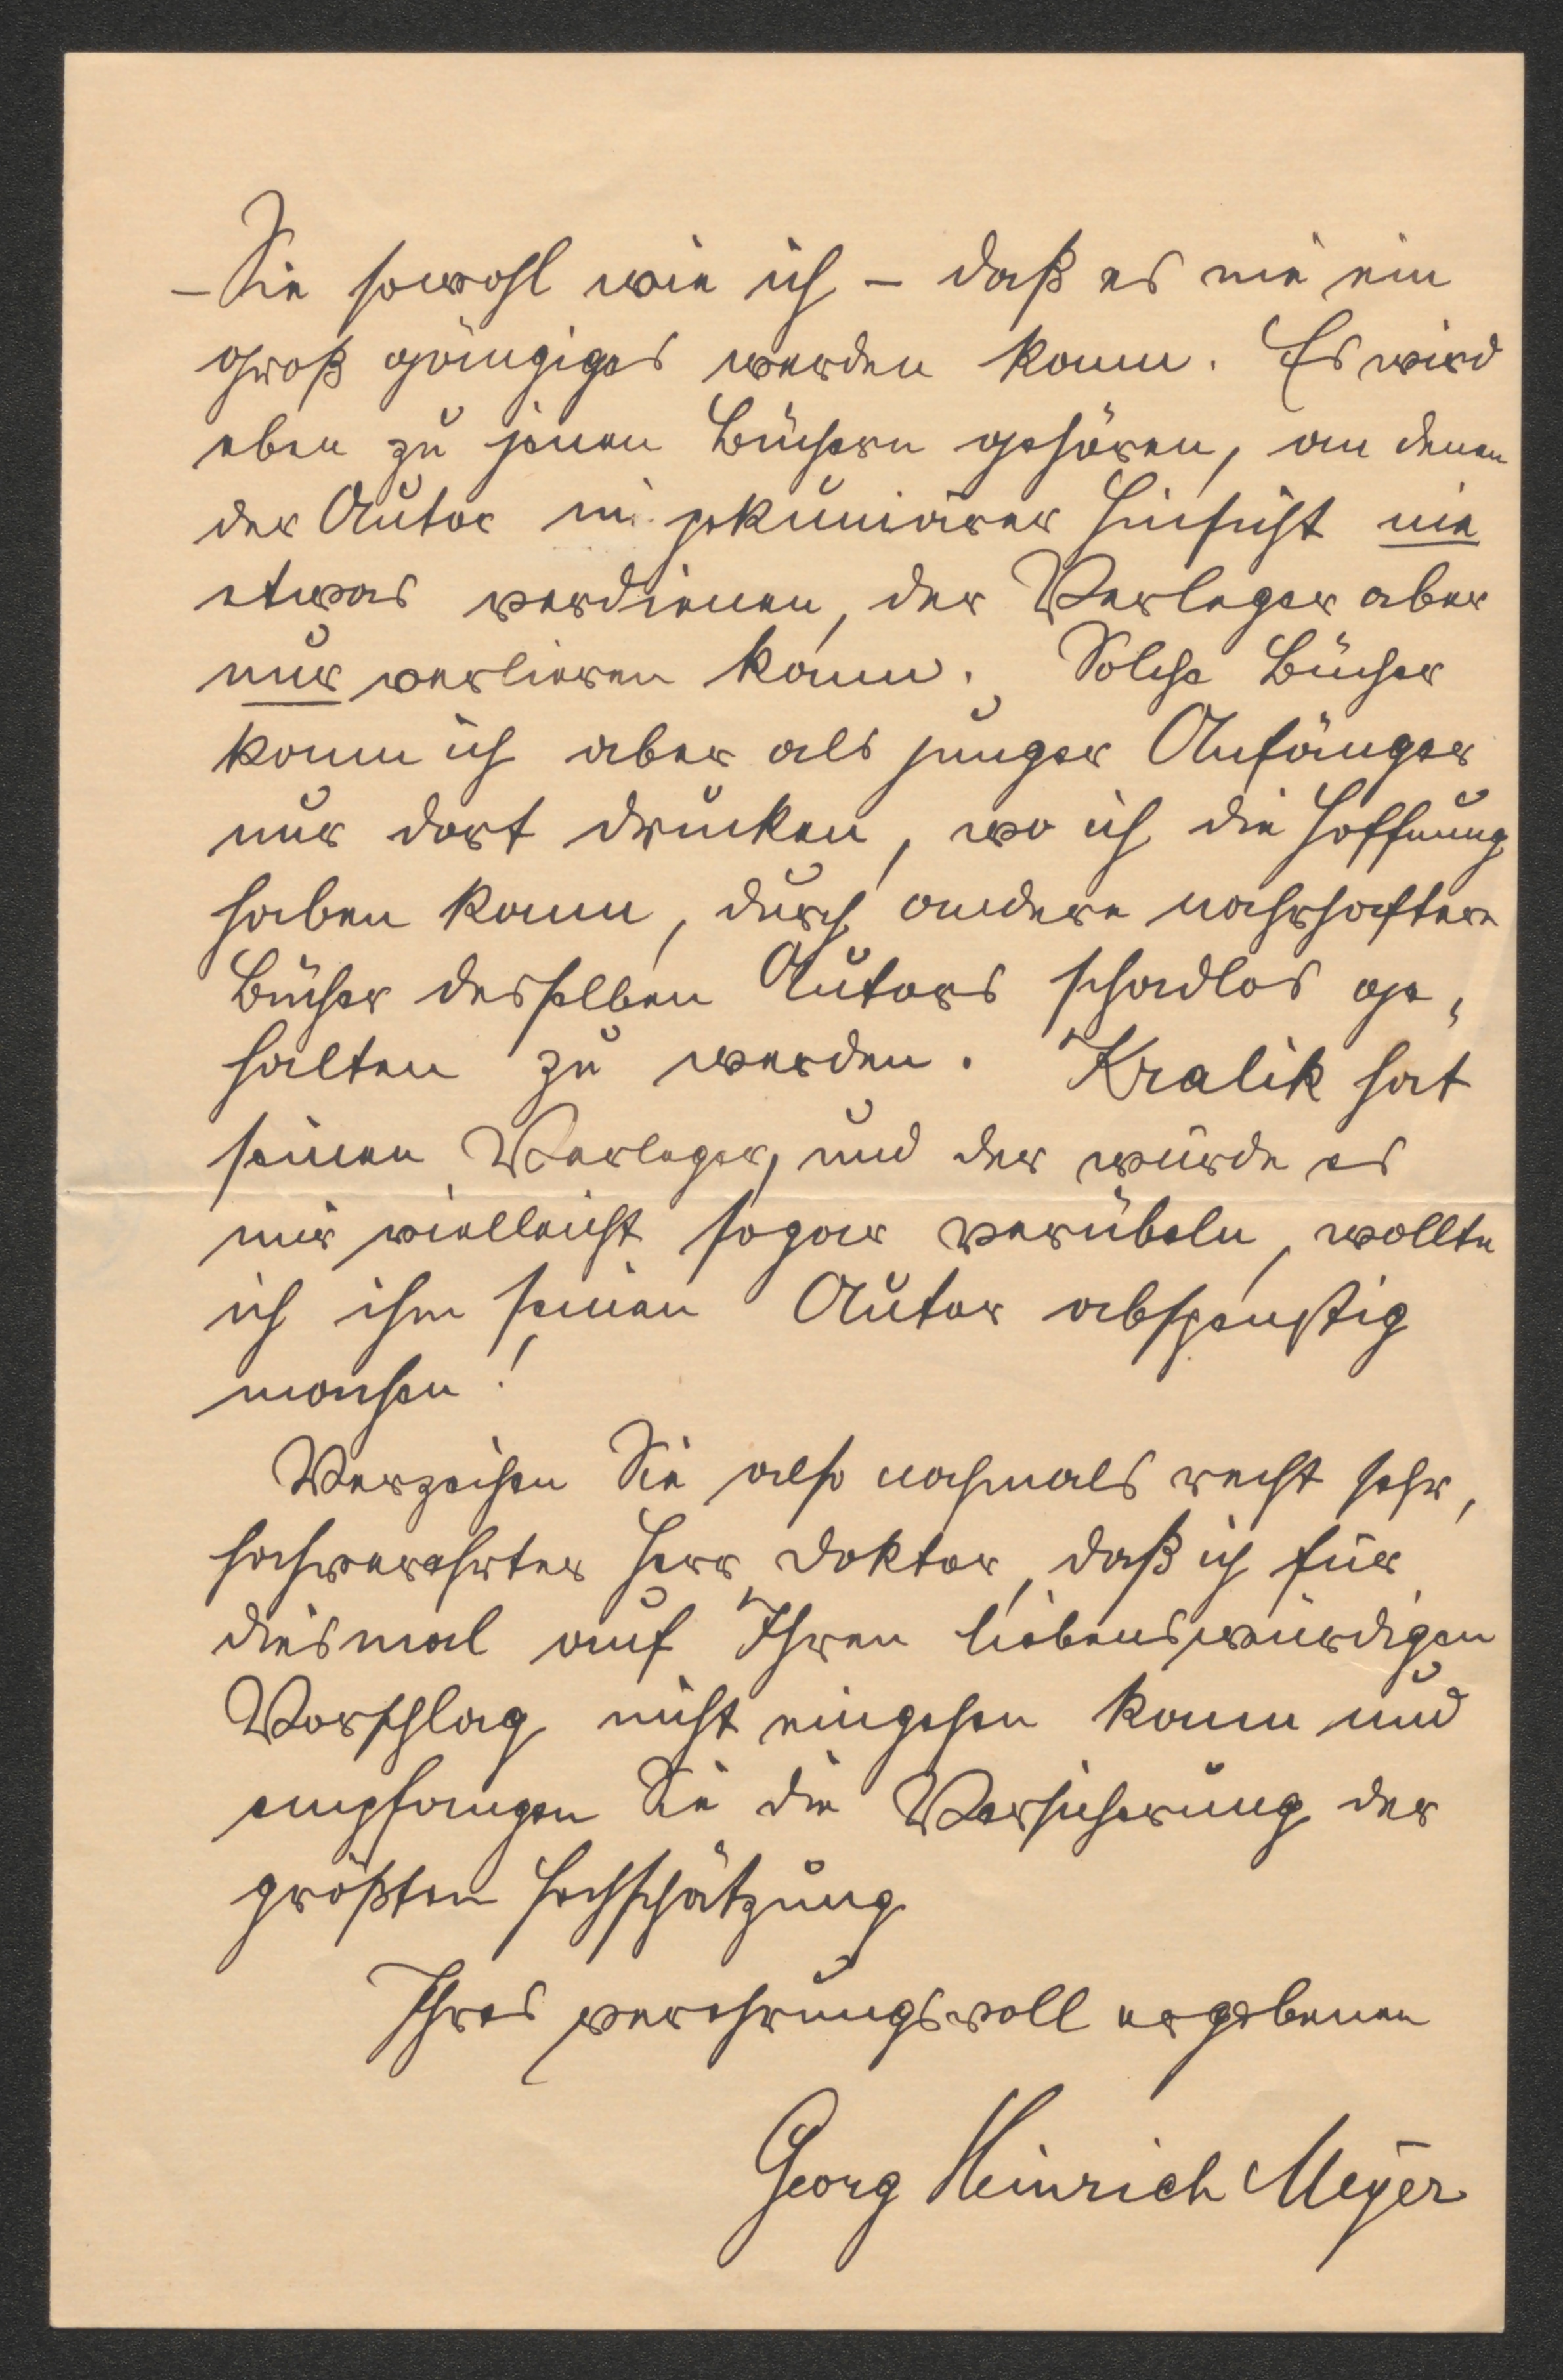 – Sie sowohl wie ich – daß es nie ein
groß gängiges werden kann. Es wird
eben zu jenen Büchern gehören, an denen
der Autor in pekuniärer Hinsicht nie
etwas verdienen, der Verleger aber
nur verlieren kann. Solche Bücher
kann ich aber als junger Anfänger
nur dort drucken, wo ich die Hoffnung
haben kann, durch andere nahrhaftere
Bücher desselben Autors schadlos ge-
halten zu werden. Kralik hat
seinen Verleger, und der würde es
mir vielleicht sogar verübeln, wollte
ich ihm seinen Autor abspenstig
machen!
Verzeihen Sie also nochmals recht sehr,
hochverehrter Herr Doktor, daß ich für
diesmal auf Ihren liebenswürdigen
Vorschlag nicht eingehen kann und
empfangen Sie die Versicherung der
größten Hochschätzung
Ihres verehrungsvoll ergebenen
Georg Heinrich Meyer